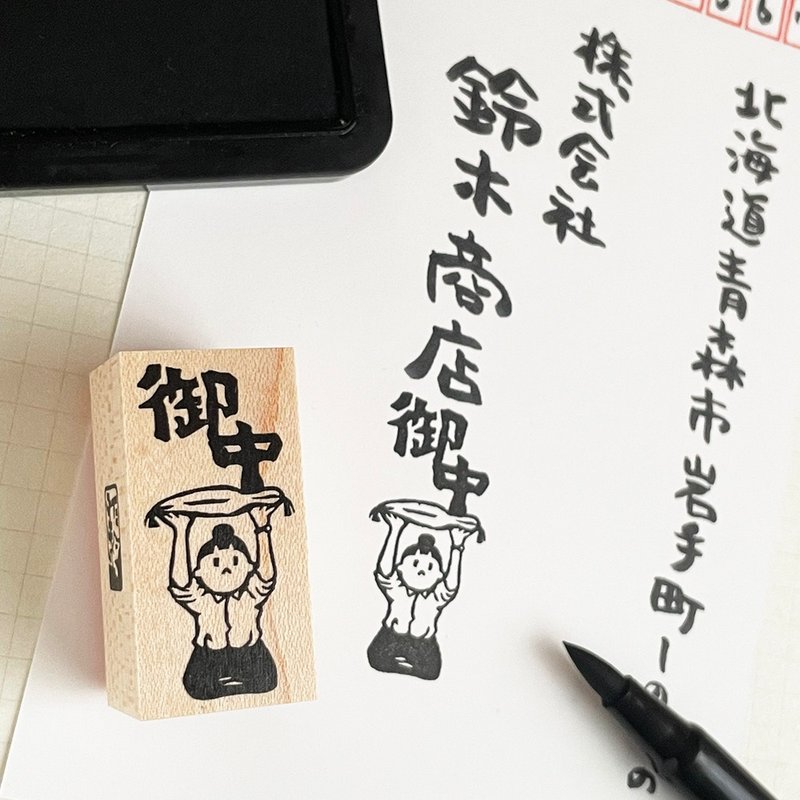 北海道青森市岩手町一の
の
株式会社
鈴木商店御中
御中